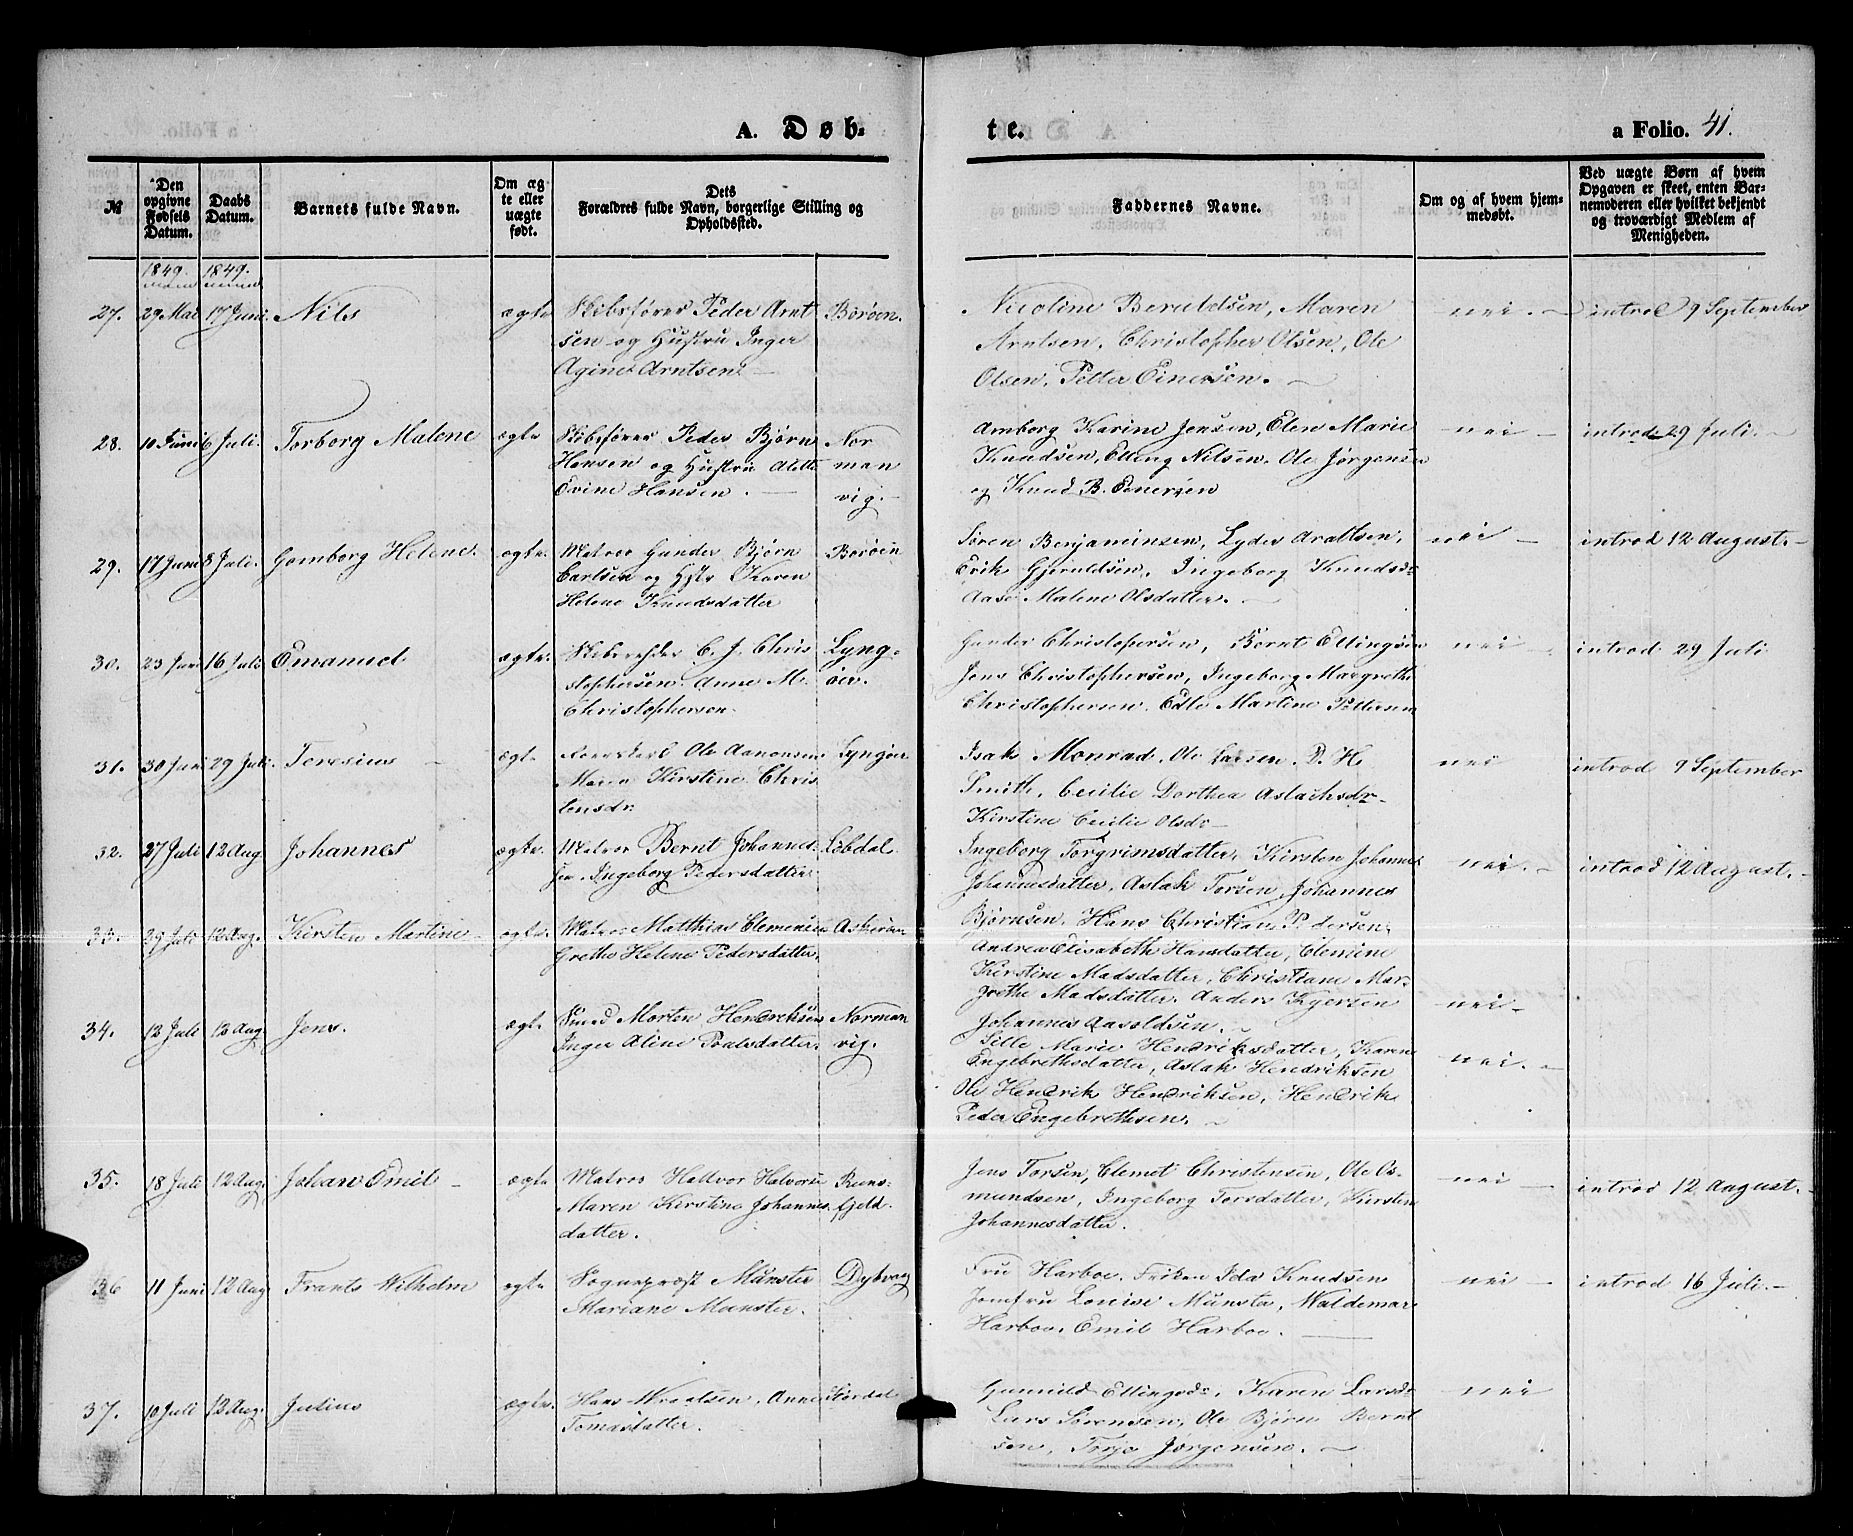 A. Døb-
te.
a Folio. 41.
№
Den opgivne Fødsels Datum.
Daabs Datum.
Barnets fulde Navn.
Om ægte eller uægte født.
Dets Forældres fulde Navn, borgerlige Stilling og Opholdssted.
Faddernes Navne.
Om og af hvem hjemmedøbt.
Ved uægte Børn af hvem Opgaven er skeet, enten Barnemoderen eller hvilket bekjendt og troværdigt Medlem af Menigheden.
1849. 1849.
27. 29 Mai 17 Juni. Nils ægte Skibsfører Peder Arnt Borøen. Nicoline Beruldsen, Maren nei. introd 9 September
sen og Hustru Inger Arntsen, Christopher Olsen, Ole
Agine Arntsen. Olsen, Petter Einersen.
28. 10 Juni 6 Juli. Torborg Malene ægte Skibsfører Peder Bjørn Nor Amborg Karine Jensen, Elen Marie nei introd 29 Juli.
Hansen og Hustru man Knudsen, Elling Nilsen, Ole Jørgensen
Evine Hansen. vig. og Knud B. Einersen
29. 17 Juni 8 Juli. Gomborg Helene. ægte. Matros Gunder Bjørn Borøen Søren Benjaminsen, Lyder nei introd 12 August.
Carlsen og Karen Erik Gjeruldsen, Ingeborg Knudsd:
Helene Knudsdatter Aase Malene Olsdatter.
30. 23 Juni 16 Juli Emanuel ægte. Skibsrheder C. J. Chris Lyng- Gunder Christophersen, Bernt Ellingsen nei introd 29 Juli
stophersen. Anne M. øer. Jens Christophersen, Ingeborg Margrethe
Christophersen. Christophersen, Martine
31. 30 Juni 29 Juli. Teresius ægte Ole Aanonsen Lyngøer Isak Monrad, Ole Larsen, P. H. nei introd 9 September
Maren Kirstine Chris Smith, Cecilie Dorthea Aslachsdr
tensdr: Kirstine Cecilie Olsdr
32. 27 Juli 12 Aug. Johannes ægte. Matros Bernt Johannes- Løbdal. Ingeborg Torgrimsdatter, Kirsten Johannes nei. introd 12 August.
sen. Ingeborg Pedersdatter. Johannesdatter, Aslak Torsen, Johannes
Bjørnsen, Hans Christian Pedersen.
33. 29 Juli 12 Aug. Kirsten Martine ægte. Matros Matthias Clemensen Askerøen Andrea Elisabeth Hansdatter, Clemine
Grethe Helene Pedersdatter. Kirstine Madsdatter, Christiane Mar-
grethe Madsdatter, Anders Kjersen nei
Johannes Aavoldsen.
34. 12 Juli 12 Aug Jens. ægte Smed Morten Hendriksen Norman Sille Marie Hendriksdatter, Karen
Inger Aline Poulsdatter. vig. Engebrethsdatter, Aslak Hendriksen nei.
Ole Hendrik Hendriksen, Hendrik
Peder Engebrethsen.
35. 18 Juli 12 Aug. Johan Emil ægte Matros Hallvor Halvorsen Runs- Jens Torsen, Clemet Christensen, Ole Os- nei introd 12 August.
Maren Kirstine Johannes- fjeld. mundsen, Ingeborg Torsdatter, Kirsten
datter. Johannesdatter.
36 11 Juni 12 Aug Frants Wilhelm ægte Sognepræst Münster Dybvaag Fru Harboe, Frøken Ida Knudsen nei introd 16 Juli.
Mariane Münster. Jomfru Louise Münster, Waldemar
Harboe, Emil Harboe.
37. 10 Juli 12 Aug. Julius ægte. Hans Wraalsen, Anne Stordal Gunnild Ellingsd:, Karen Larsd: nei
Tomasdatter. Lars Sørensen, Ole Bjørn Bernt
sen, Terje Jørgensen.